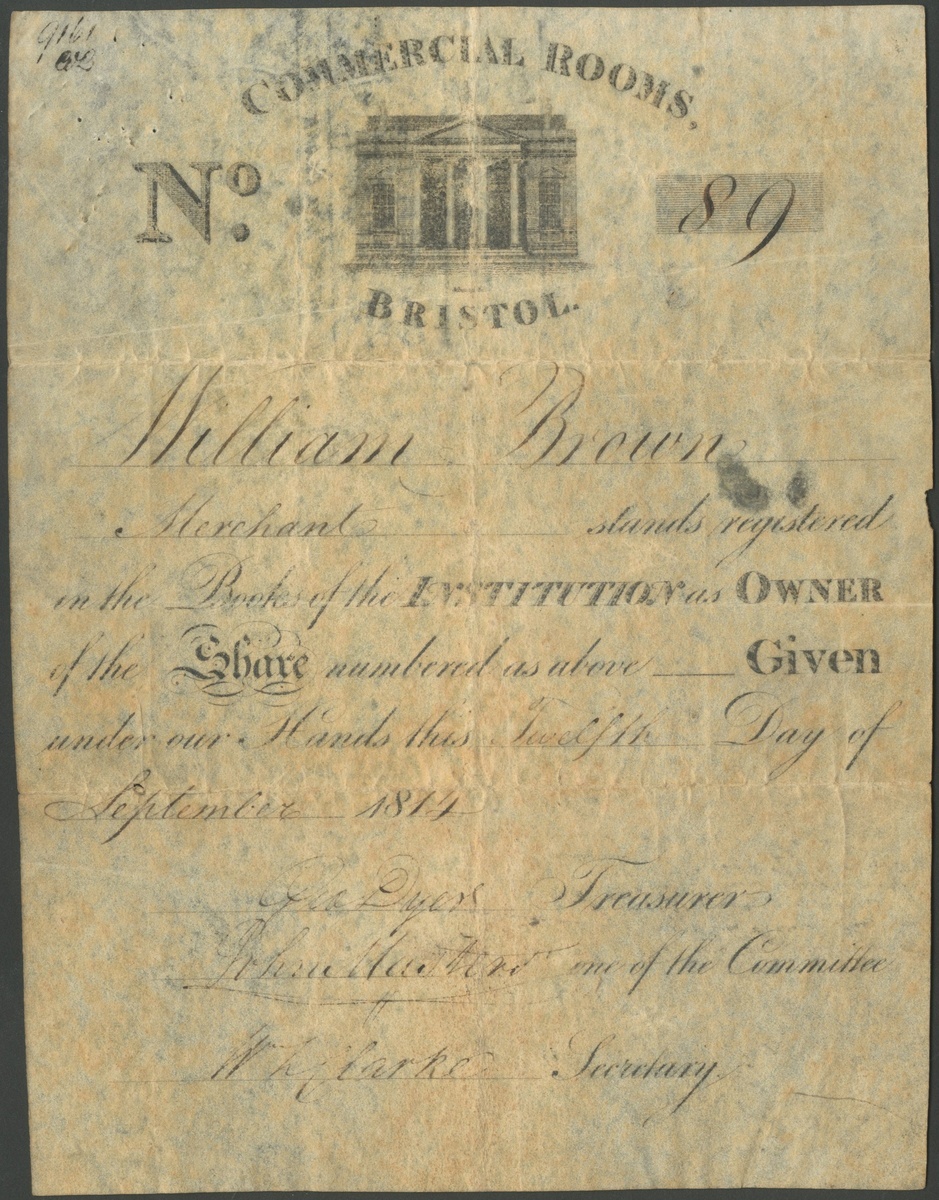 COMMERCIAL ROOMS,
No. 89
BRISTOL.
William Brown
Merchant stands registered
in the Books of the INSTITUTION as OWNER
of the Share numbered as above Given
under our Hands this Twelfth Day of
September 1814
Geo Dyer Treasurer
John Masters one of the Committee
Clarke Secretary